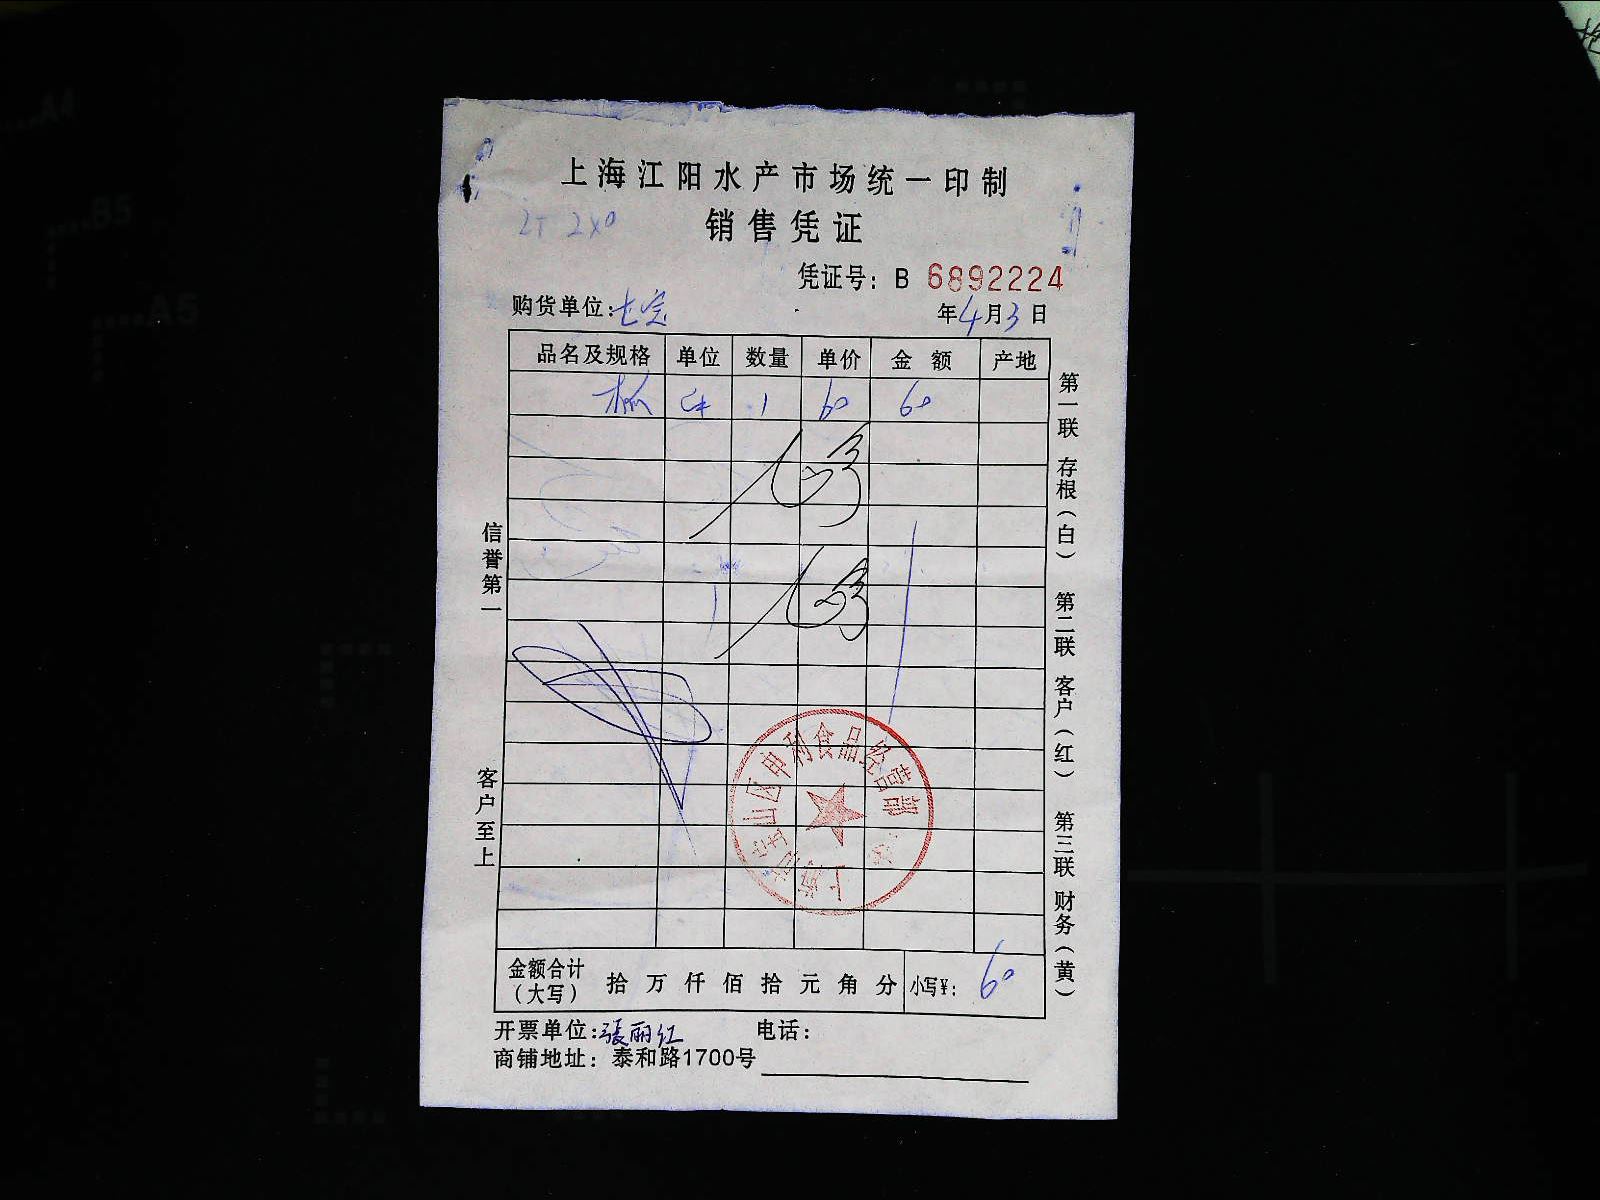 上海江阳水产市场统一印制
销售凭证
凭证号：B 6892224
购货单位：七宗
年4月3日
品名及规格 单位 数量 单价 金额 产地
1 60 60
信誉第一
客户至上
第一联 存根（白） 第二联 客户（红） 第三联 财务（黄）
上海市宝山区申利食品经营部
金额合计（大写） 拾 万 仟 佰 拾 元 角 分 小写¥： 60
开票单位：張丽红 电话：
商铺地址：泰和路1700号